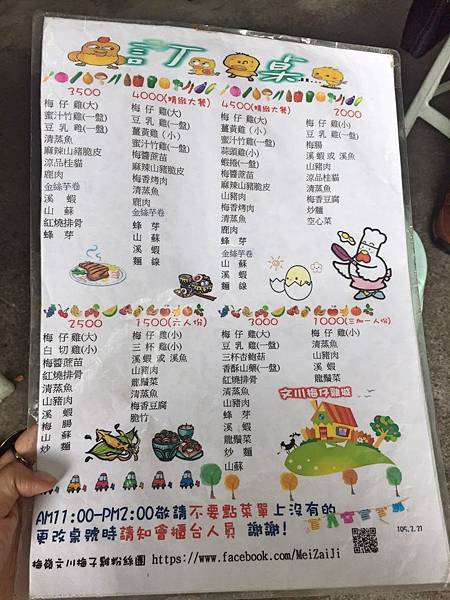 訂桌
3500
梅仔雞(大)
蜜汁竹雞(一盤)
豆乳雞(一盤)
清蒸魚
麻辣山豬脆皮
涼品桂貓
鹿肉
金絲芋卷
溪蝦
山蘇
紅燒排骨
蜂芽
4000(精緻大餐)
梅仔雞(大)
豆乳雞(一盤)
薑黃雞(小)
蜜汁竹雞(一盤)
梅醬蔗苗
麻辣山豬脆皮
梅香烤肉
清蒸魚
鹿肉
金絲芋卷
蜂芽
山蘇
溪蝦
麵線
4500(精緻大餐)
梅仔雞(大)
薑黃雞(小)
蜜汁竹雞(一盤)
蒜頭雞(小)
蝦捲(一盤)
梅醬蔗苗
麻辣山豬脆皮
山豬肉
梅香烤肉
清蒸魚
鹿肉
蜂芽
金絲芋卷
山蘇
溪蝦
麵線
2000
梅仔雞(小)
豆乳雞(一盤)
梅腸
溪蝦或溪魚
山豬肉
涼品桂貓
清蒸魚
梅香豆腐
炒麵
空心菜
2500
梅仔雞(大)
白切雞(小)
梅醬蔗苗
紅燒排骨
清蒸魚
山豬肉
溪蝦
梅腸
山蘇
炒麵
1500(六人份)
梅仔雞(小)
三杯雞(小)
溪蝦或溪魚
山豬肉
龍鬚菜
清蒸魚
梅香豆腐
脆竹
3000
梅仔雞(大)
豆乳雞(一盤)
三杯杏鮑菇
香酥山藥(一盤)
紅燒排骨
清蒸魚
山豬肉
蜂芽
溪蝦
龍鬚菜
炒麵
山蘇
1000(三加一人份)
梅仔雞(小)
清蒸魚
山豬肉
溪蝦
龍鬚菜
文川梅仔雞城
AM11:00-PM2:00敬請不要點菜單上沒有的
更改桌號時請知會櫃台人員 謝謝!
105.2.21
梅嶺文川梅子雞粉絲團 https://www.facebook.com/MeiZaiJi